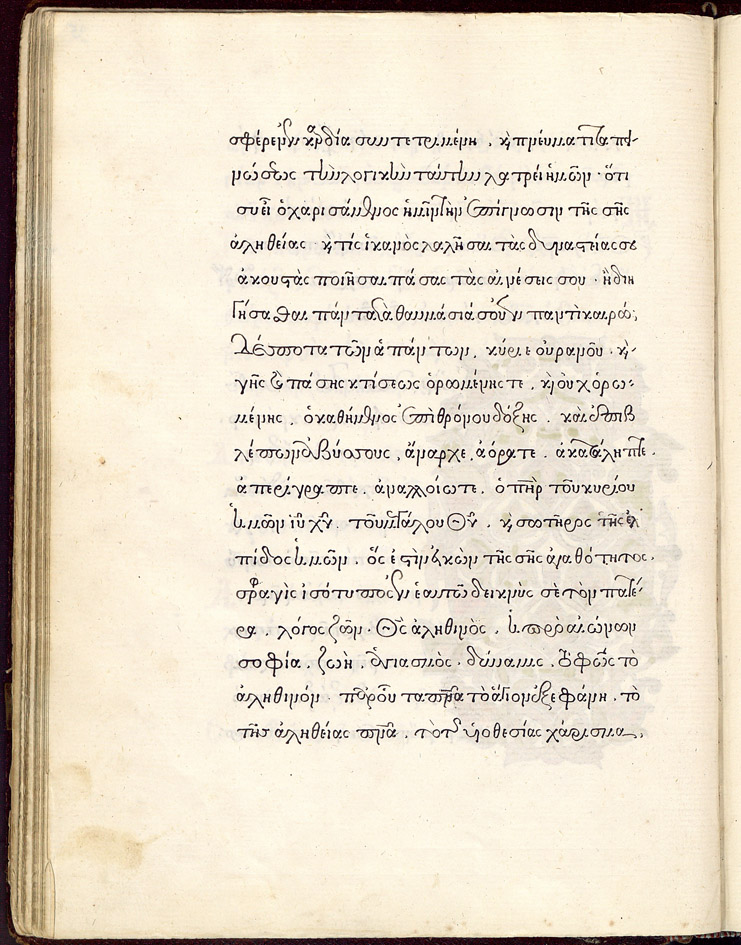 σφέρειν ἐν καρδία συντετριμένη, κ̀ πνεύματι ταπει-
νώσεως τὴν λογικὴν ταύτην λατρεί ἡμῶν· ὅτι
συ εἶ ὁ χαρισάμενος ἡμῖν τὴν ἐπίγνωσιν τῆς σῆς
ἀληθείας· κ̀ τίς ἱκανὸς λαλῆσαι τὰς δυναστείας σου
ἀκουστὰς ποιῆσαι πάσας τὰς αἰνέσεις σου· ἢ διη
γήσασθαι πάντα τὰ θαυμάσιά σου ἐν παντὶ καιρῶ;
Δέσποτα τῶν ἁπάντων, κύριε οὐρανοῦ· κ̀
γῆς κ̀ πάσης κτίσεως ὁρωμένης τε, κ̀ οὐχ ὁρω-
μένης, ὁ καθήμενος ἐπὶ θρόνου δόξης, καὶ ἐπιβ
λέπων ἀβύσσους, ἄναρχε, ἀόρατε, ἀκατάληπτε,
ἀπερίγραπτε, ἀναλλοίωτε, ὁ πη̅ρ τοῦ κυρίου
ἡμῶν ιυ̅ χυ̅, τοῦ μεγάλου Θυ̅, κ̀ σωτῆρος τῆς ἐλ
πίδος ἡμῶν, ὅς ἐστιν εἰκὼν τῆς σῆς ἀγαθότητος,
σφραγὶς ἰσότυπος ἐν ἑαυτῶ δεικνὺς σὲ τὸν πατέ-
ρα, λόγος ζῶν· Θς̅ ἀληθινὸς, ἡ πρὸ αἰώνων
σοφία, ζωὴ, ἁγιασμὸς· δύναμις, τὸ φῶς τὸ
ἀληθινόν· παρ οὗ τὸ πνα̅ τὸ ἅγιον ἐξεφάνη, τὸ
τῆς ἀληθείας πνα̅, τὸ τῆς υἱοθεσίας χάρισμα,